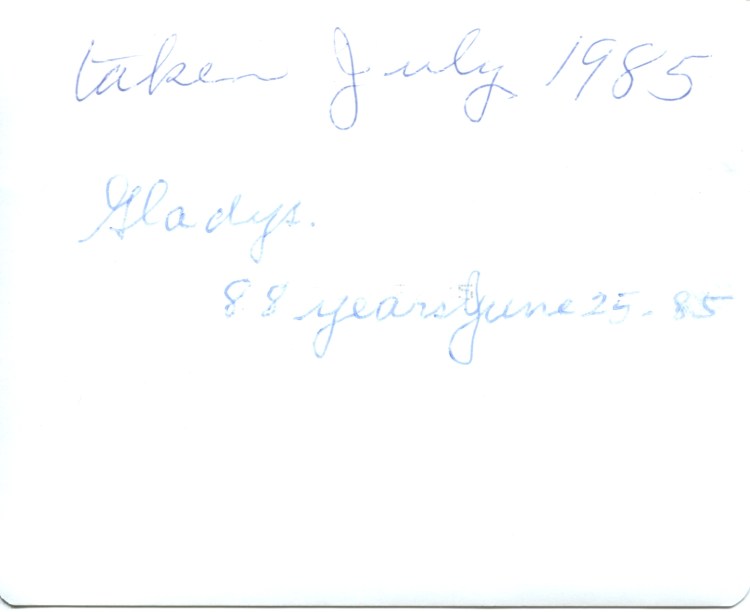 taken July 1985
Gladys.
88 years June 25. 85